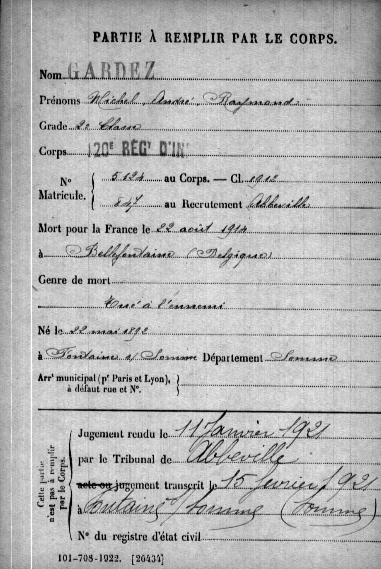 PARTIE À REMPLIR PAR LE CORPS.
Nom GARDEZ
Prénoms Michel, André, Raymond
Grade 2e Classe
Corps 120e RÉGt D'IN
N° Matricule. 5124 au Corps. — Cl. 1912
547 au Recrutement Abbeville
Mort pour la France le 22 août 1914
à Bellefontaine (Belgique)
Genre de mort
Tué à l'ennemi
Né le 22 mai 1892
à Fontaine s/ Somme Département Somme
Arrt municipal (pr Paris et Lyon),
à défaut rue et N°.
Cette partie n'est pas à remplir par le Corps.
Jugement rendu le 11 Janvier 1921
par le Tribunal de Abbeville
acte ou jugement transcrit le 15 février 1921
à Fontaine s/ Somme (Somme)
N° du registre d'état civil
101-708-1922. [26434]